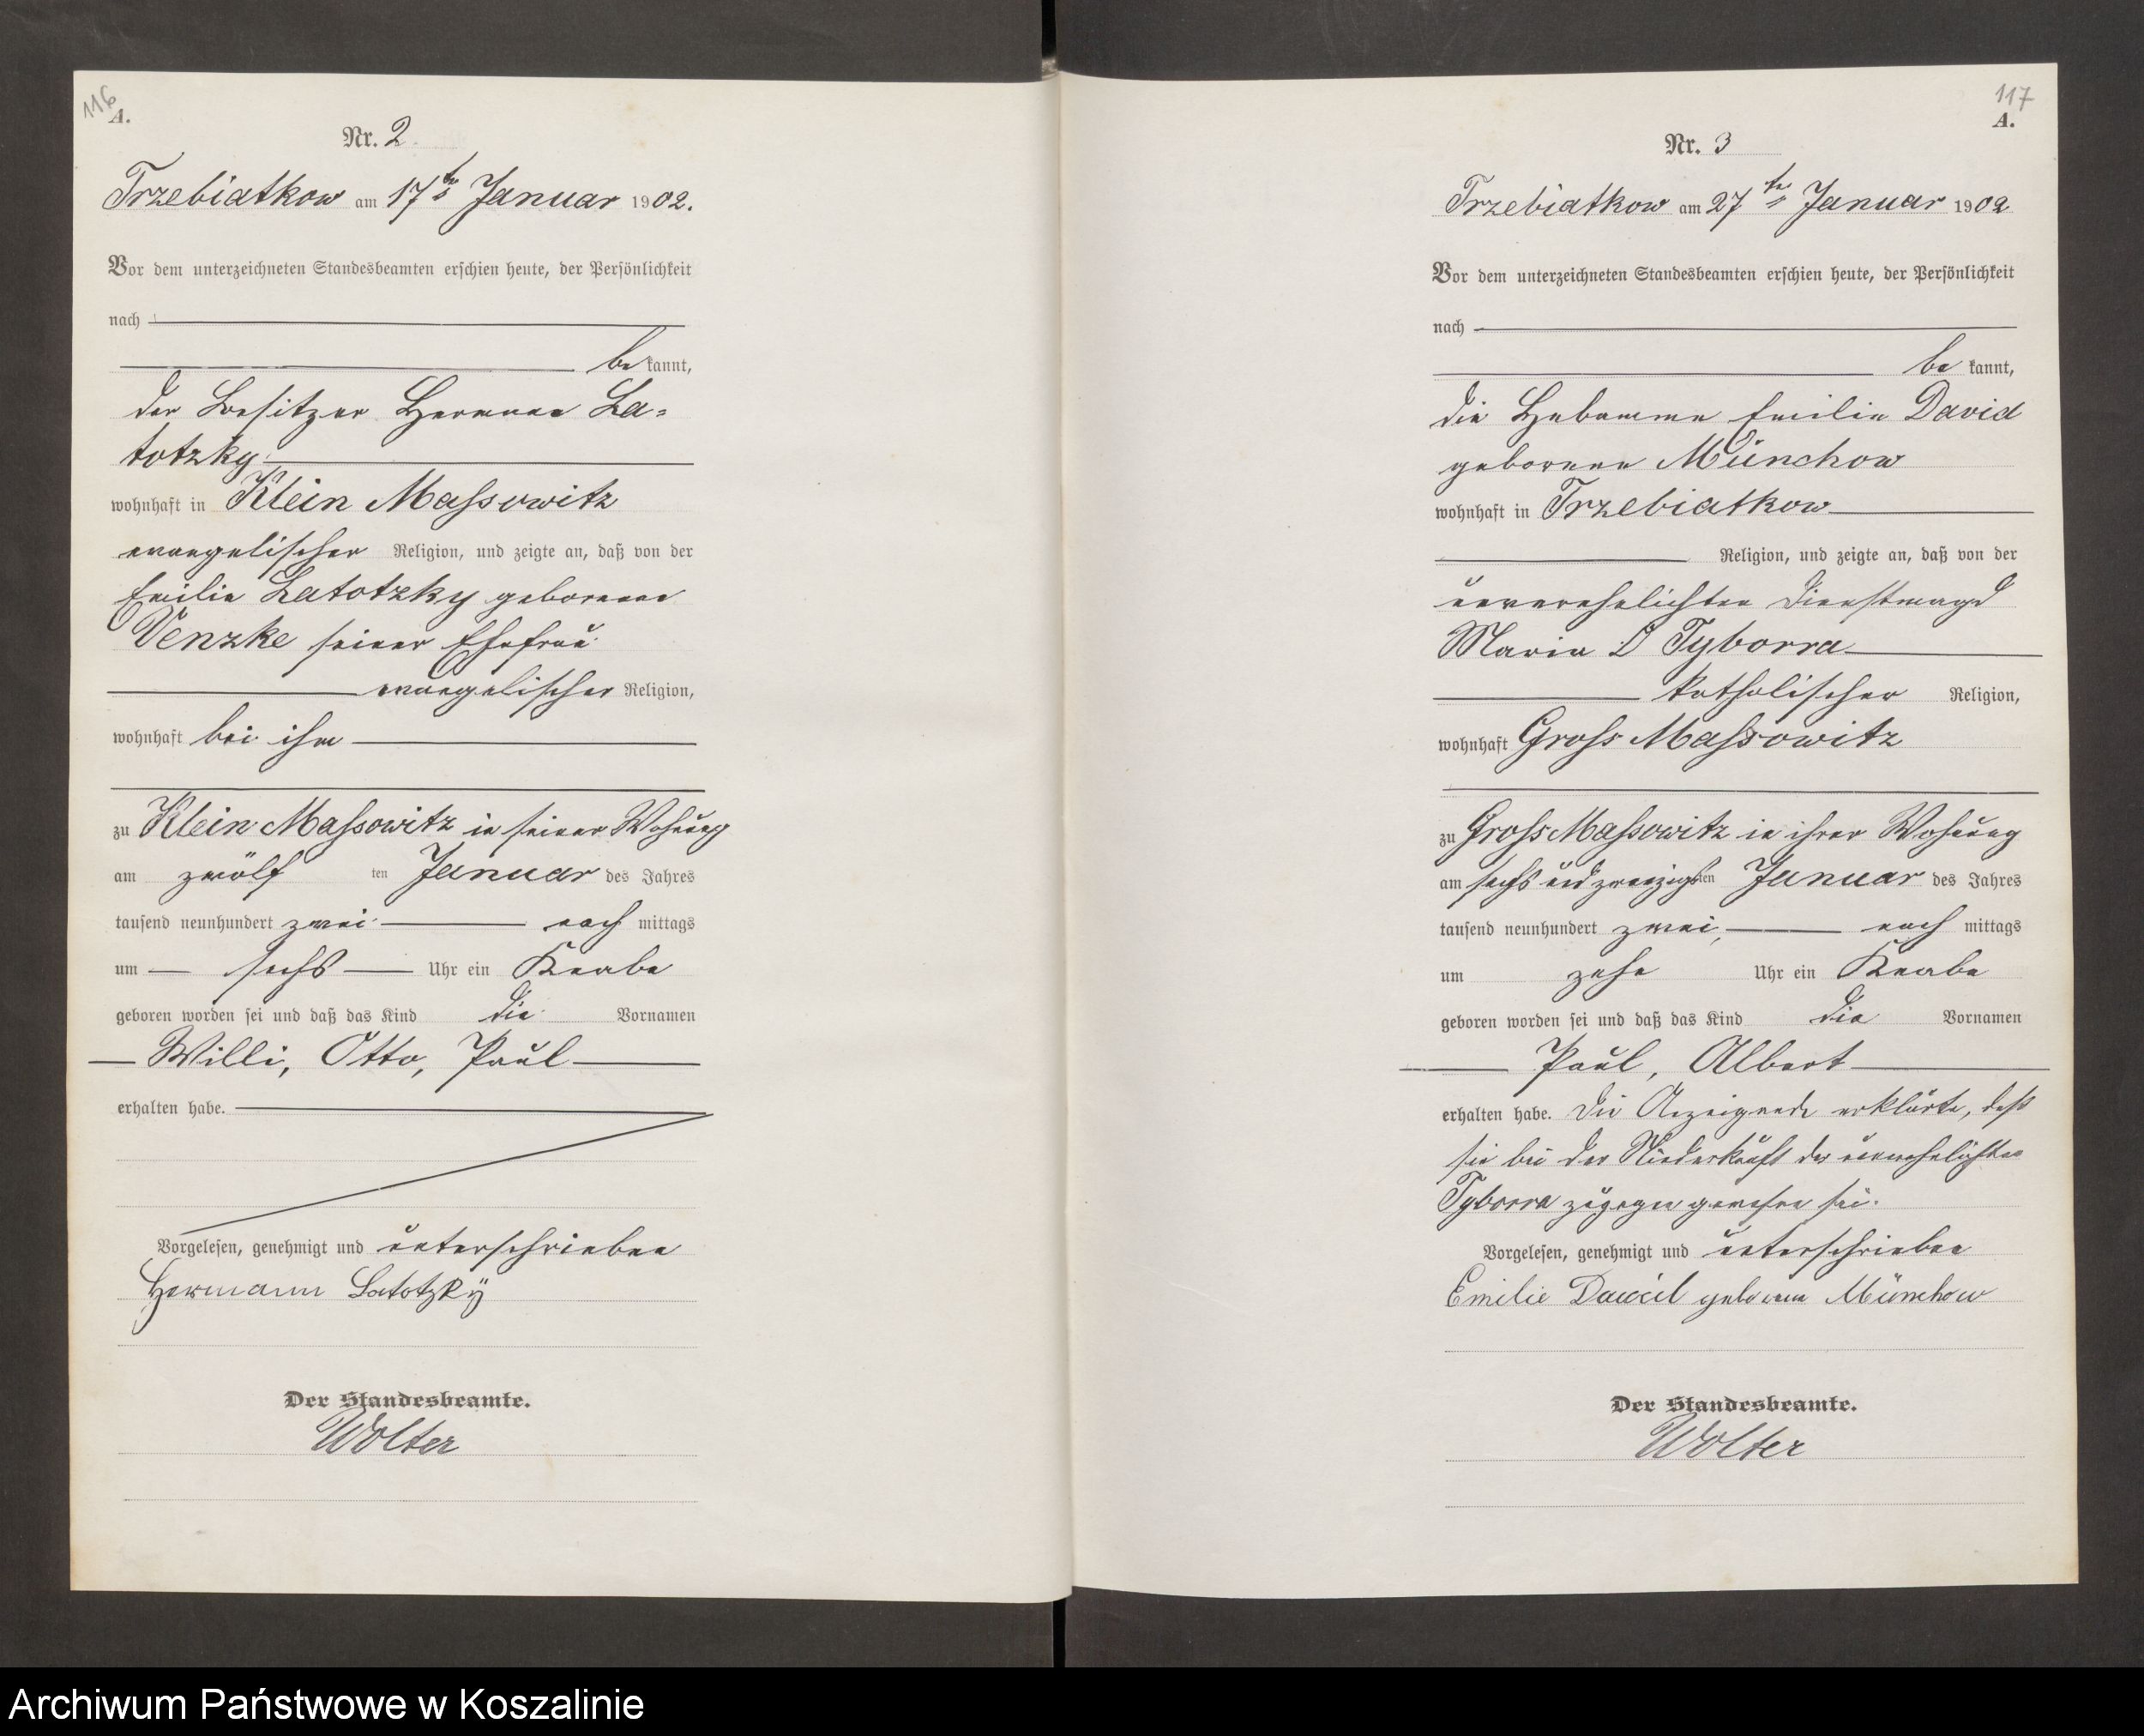 116
A.
Nr. 2.
Trzebiatkow am 17ten Januar 1902.
Vor dem unterzeichneten Standesbeamten erschien heute, der Persönlichkeit
nach
be kannt,
der Besitzer Hermann La=
totzky
wohnhaft in Klein Massowitz
evangelischer Religion, und zeigte an, daß von der
Emilie Latotzky geborenen
Venzke seiner Ehefrau
evangelischer Religion,
wohnhaft bei ihm
zu Klein Massowitz in seiner Wohnung
am zwölf ten Januar des Jahres
tausend neunhundert zwei nach mittags
um sechs Uhr ein Knabe
geboren worden sei und daß das Kind die Vornamen
Willi, Otto, Paul
erhalten habe.
Vorgelesen, genehmigt und unterschrieben
Hermann Latotzkÿ
Der Standesbeamte.
Wolter
117
A.
Nr. 3
Trzebiatkow am 27ten Januar 1902
Vor dem unterzeichneten Standesbeamten erschien heute, der Persönlichkeit
nach
be kannt,
die Hebamme Emilie David
geborene Münchow
wohnhaft in Trzebiatkow
Religion, und zeigte an, daß von der
unverehelichten Dienstmagd
Marie Tyborra
katholischer Religion,
wohnhaft Gross Massowitz
zu Gross Massowitz in ihrer Wohnung
am sechs und zwanzigsten Januar des Jahres
tausend neunhundert zwei, nach mittags
um zehn Uhr ein Knabe
geboren worden sei und daß das Kind die Vornamen
Paul, Albert
erhalten habe. Die Anzeigende erklärte, daß
sie bei der Niederkunft der unverehelichten
Tyborra zugegen gewesen sei.
Vorgelesen, genehmigt und unterschrieben
Emilie David geborene Münchow
Der Standesbeamte.
Wolter
Archiwum Państwowe w Koszalinie